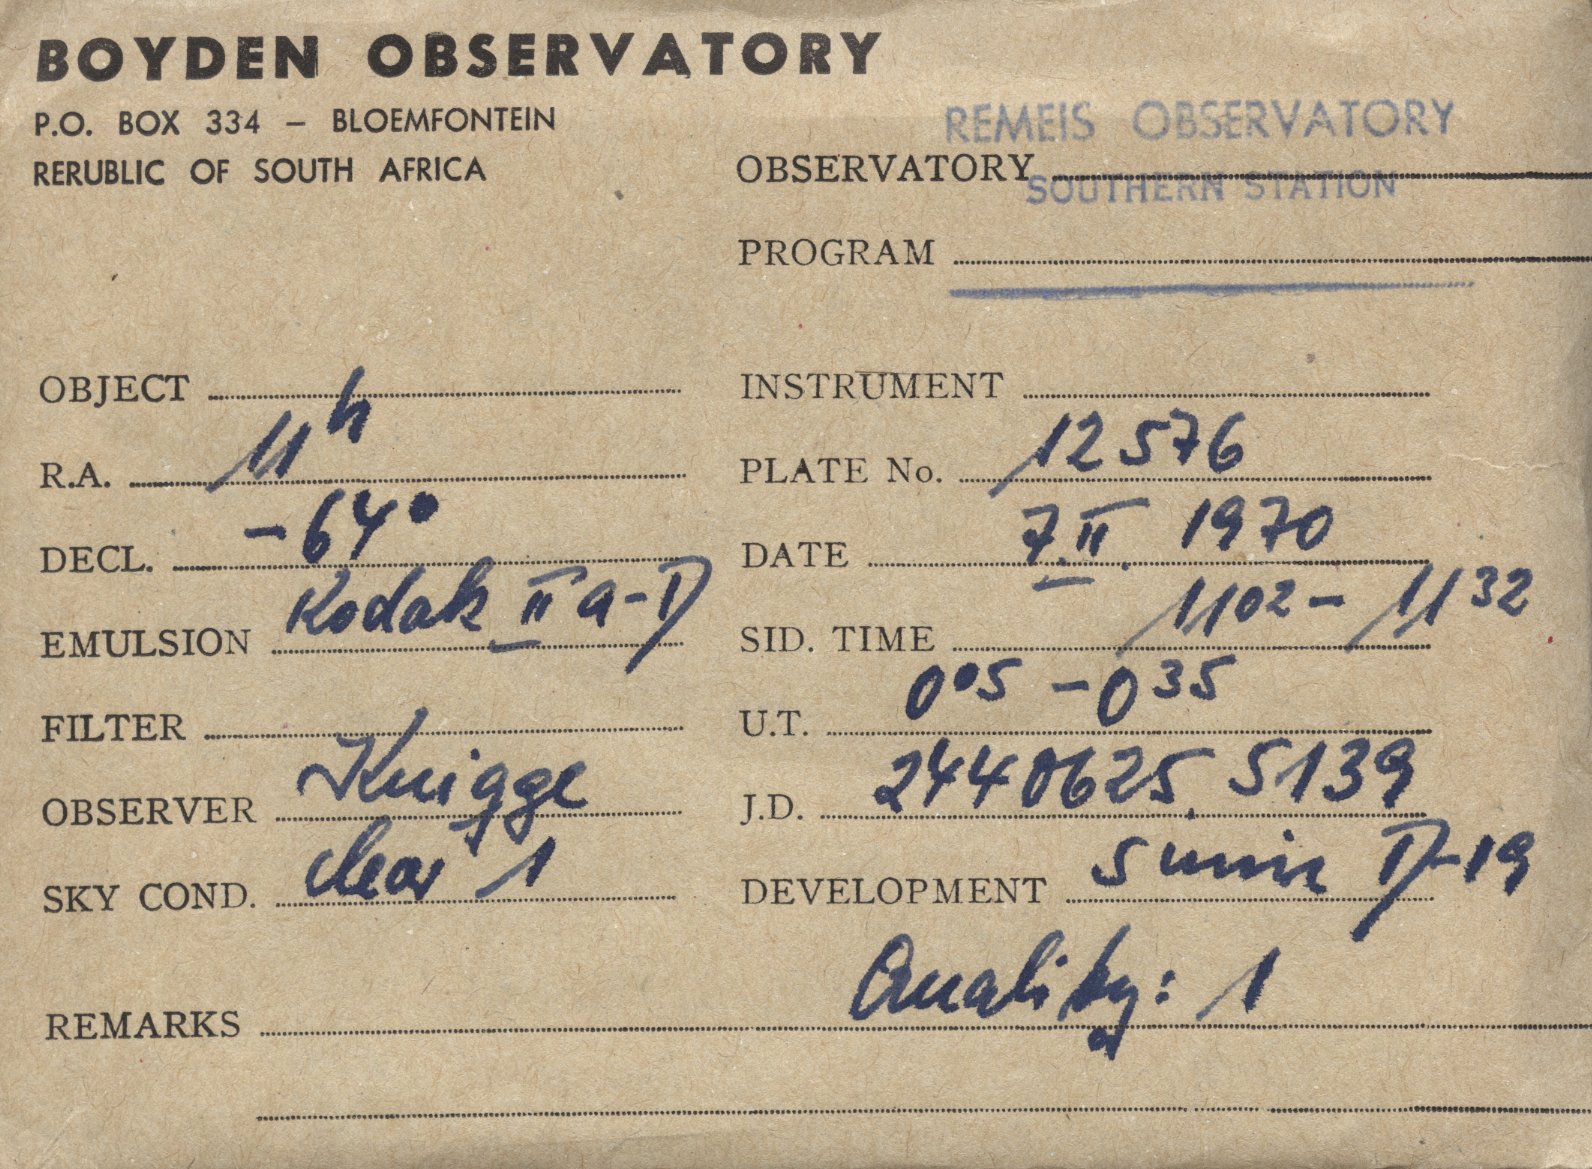 BOYDEN OBSERVATORY
P.O. BOX 334 – BLOEMFONTEIN
RERUBLIC OF SOUTH AFRICA
REMEIS OBSERVATORY
OBSERVATORY
SOUTHERN STATION
PROGRAM
OBJECT
INSTRUMENT
R.A. 11h
PLATE No. 12576
DECL. -64°
DATE 7.II. 1970
EMULSION Kodak IIa-D
SID. TIME 1102 - 1132
FILTER
U.T. 005 - 035
OBSERVER Knigge
J.D. 2440625.5139
SKY COND. clear 1
DEVELOPMENT 5 min D-19
Quality: 1
REMARKS